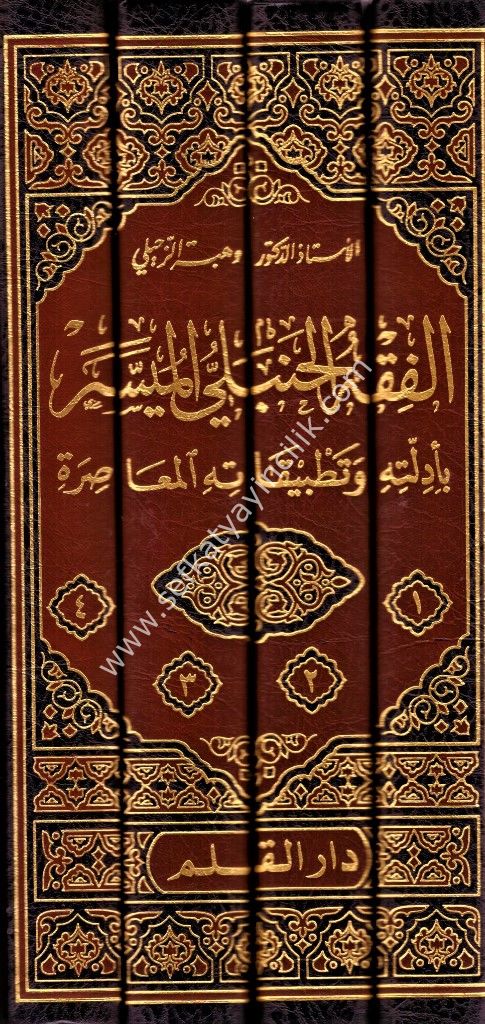 الأستاذ الدكتور وهبة الزحيلي
الفِقْهُ الحَنبَليُّ المُيسَّر
بأدِلّتِهِ وَتَطْبيقَاتِهِ المُعَاصِرَة
١
٢
٣
٤
دار القلم
www.serhatyayincilik.com